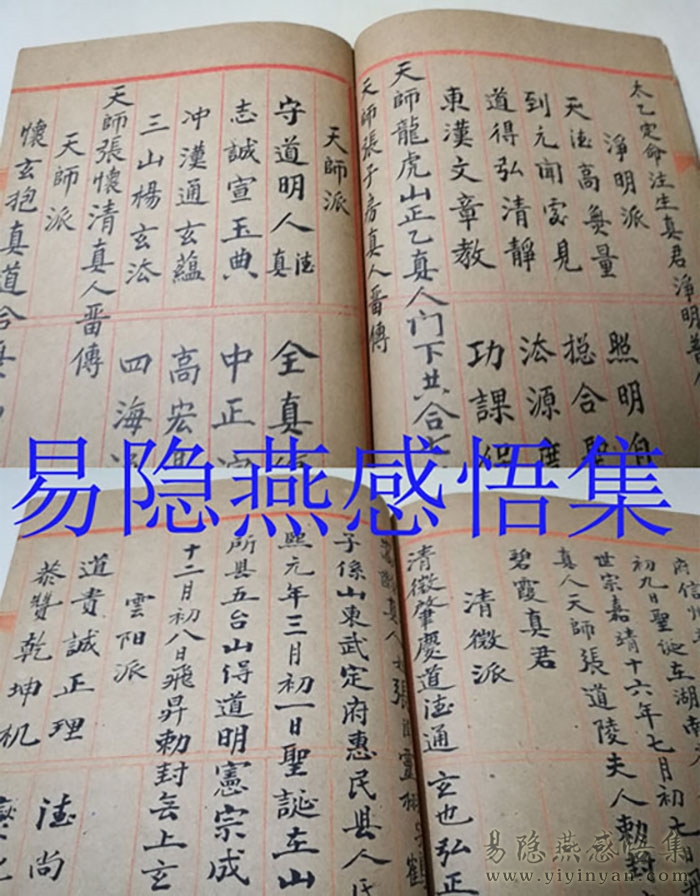 太乙定命注生真君淨明普
淨明派
天法高無量 照明自
到元聞零見 揔合聖
道得弘清靜 法源廣
東漢文章教 功課
天師龍虎山正乙真人门下共合
天師張子房真人畱傳
天師派
守道明人法真 全真
志誠宣玉典 中正
冲漢通玄蘊 高宏
三山楊玄法 四海
天師張懷清真人畱傳
天師派
懷玄抱真道合無
易隐燕感悟集
府信州
初九日聖誕在湖南
世宗嘉靖十六年七月初七日
真人天師張道陵夫人勅封
碧霞真君
清微派
清微肇慶道法通玄也弘正
真人
子係山東武定府惠民县人氏
熙元年三月初一日聖誕在山
所县五台山得道明憲宗成
十二月初八日飛昇勅封無上玄
雲阳派
道貴誠正理 法尚
恭贊乾坤机
易隐燕感悟集
www.yiyinyan.com